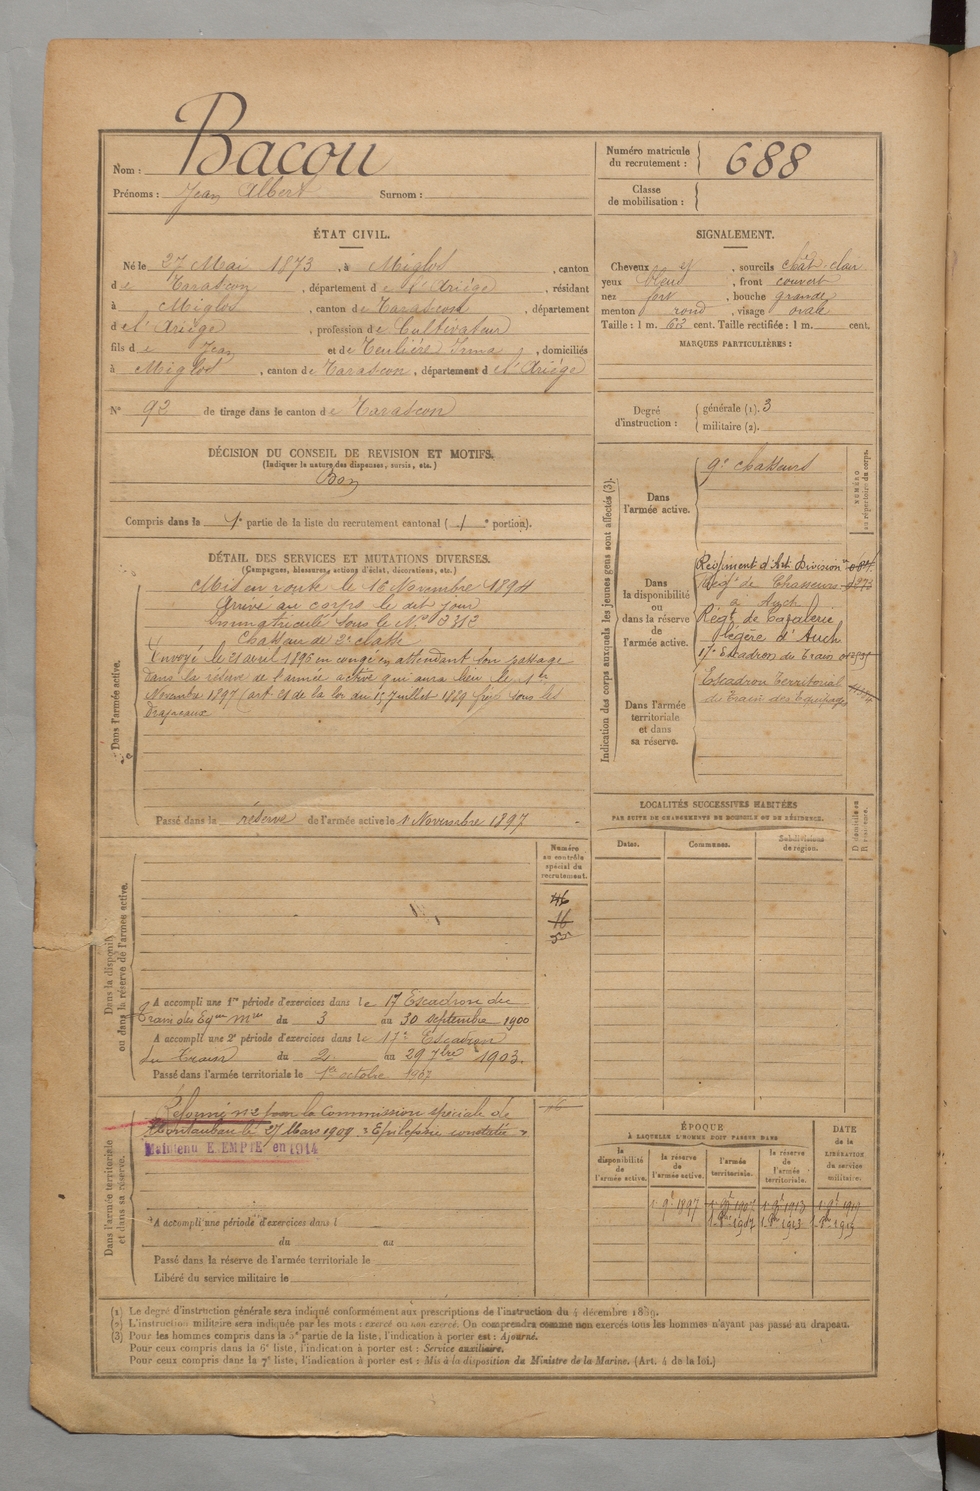 Nom : Bacou
Prénoms : Jean Albert Surnom :
Numéro matricule du recrutement : 688
Classe de mobilisation :
ÉTAT CIVIL.
Né le 27 Mai 1873, à Miglos, canton
de Tarascon, département de l'Ariège, résidant
à Miglos, canton de Tarascon, département
de l'Ariège, profession de Cultivateur
fils de Jean et de Teulière Irma, domiciliés
à Miglos, canton de Tarascon, département de l'Ariège
N° 92 de tirage dans le canton de Tarascon
SIGNALEMENT.
Cheveux et, sourcils chât. clair
yeux bleus, front couvert
nez fort, bouche grande
menton rond, visage ovale
Taille : 1 m. 63 cent. Taille rectifiée : 1 m. cent.
MARQUES PARTICULIÈRES :
Degré d'instruction : générale (1). 3
militaire (2).
DÉCISION DU CONSEIL DE REVISION ET MOTIFS.
(Indiquer la nature des dispenses, sursis, etc.)
Bon
Compris dans la 1e partie de la liste du recrutement cantonal (1e portion).
DÉTAIL DES SERVICES ET MUTATIONS DIVERSES.
(Campagnes, blessures, actions d'éclat, décorations, etc.)
Dans l'armée active.
Mis en route le 16 Novembre 1894
Arrivé au corps le dit jour
Immatriculé sous le N°
Chasseur de 2e classe
Envoyé le 21 avril 1896 en congé en attendant son passage
dans la réserve de l'armée active qui aura lieu le 1er
Novembre 1897 (art. 21 de la loi du 15 Juillet 1889 frère sous les
drapeaux
Passé dans la réserve de l'armée active le 1 Novembre 1897
Indication des corps auxquels les jeunes gens sont affectés (3).
NUMÉRO au répertoire du corps.
Dans l'armée active.
9e chasseurs
Dans la disponibilité ou dans la réserve de l'armée active.
Régiment d'Art. Division
Régt de Chasseurs
à Auch
Régt de Cavalerie
légère d'Auch
17e Escadron du Train
Dans l'armée territoriale et dans sa réserve.
Escadron Territorial
du Train des Equipages
LOCALITÉS SUCCESSIVES HABITÉES
PAR SUITE DE CHANGEMENTS DE DOMICILE OU DE RÉSIDENCE.
Dates. Communes. Subdivisions de région.
D domicile ou R résidence.
Dans la disponibilité ou dans la réserve de l'armée active.
Numéro au contrôle spécial du recrutement.
46
16
A accompli une 1re période d'exercices dans le 17 Escadron du
Train des Eq. Mres du 3 au 30 septembre 1900
A accompli une 2e période d'exercices dans le 17e Escadron
du Train du 2 au 29 7bre 1903.
Passé dans l'armée territoriale le 1er octobre 1907
Dans l'armée territoriale et dans sa réserve.
Réformé n°2 par la Commission spéciale de
Montauban le 27 Mars 1909 « Epilepsie constatée »
Maintenu EXEMPTÉ en 1914
A accompli une période d'exercices dans l
du au
Passé dans la réserve de l'armée territoriale le
Libéré du service militaire le
ÉPOQUE
À LAQUELLE L'HOMME DOIT PASSER DANS
la disponibilité de l'armée active.
la réserve de l'armée active.
l'armée territoriale.
la réserve de l'armée territoriale.
DATE de la LIBÉRATION du service militaire.
(1) Le degré d'instruction générale sera indiqué conformément aux prescriptions de l'instruction du 4 décembre 1889.
(2) L'instruction militaire sera indiquée par les mots : exercé ou non exercé. On comprendra comme non exercés tous les hommes n'ayant pas passé au drapeau.
(3) Pour les hommes compris dans la 5e partie de la liste, l'indication à porter est : Ajourné.
Pour ceux compris dans la 6e liste, l'indication à porter est : Service auxiliaire.
Pour ceux compris dans la 7e liste, l'indication à porter est : Mis à la disposition du Ministre de la Marine. (Art. 4 de la loi.)